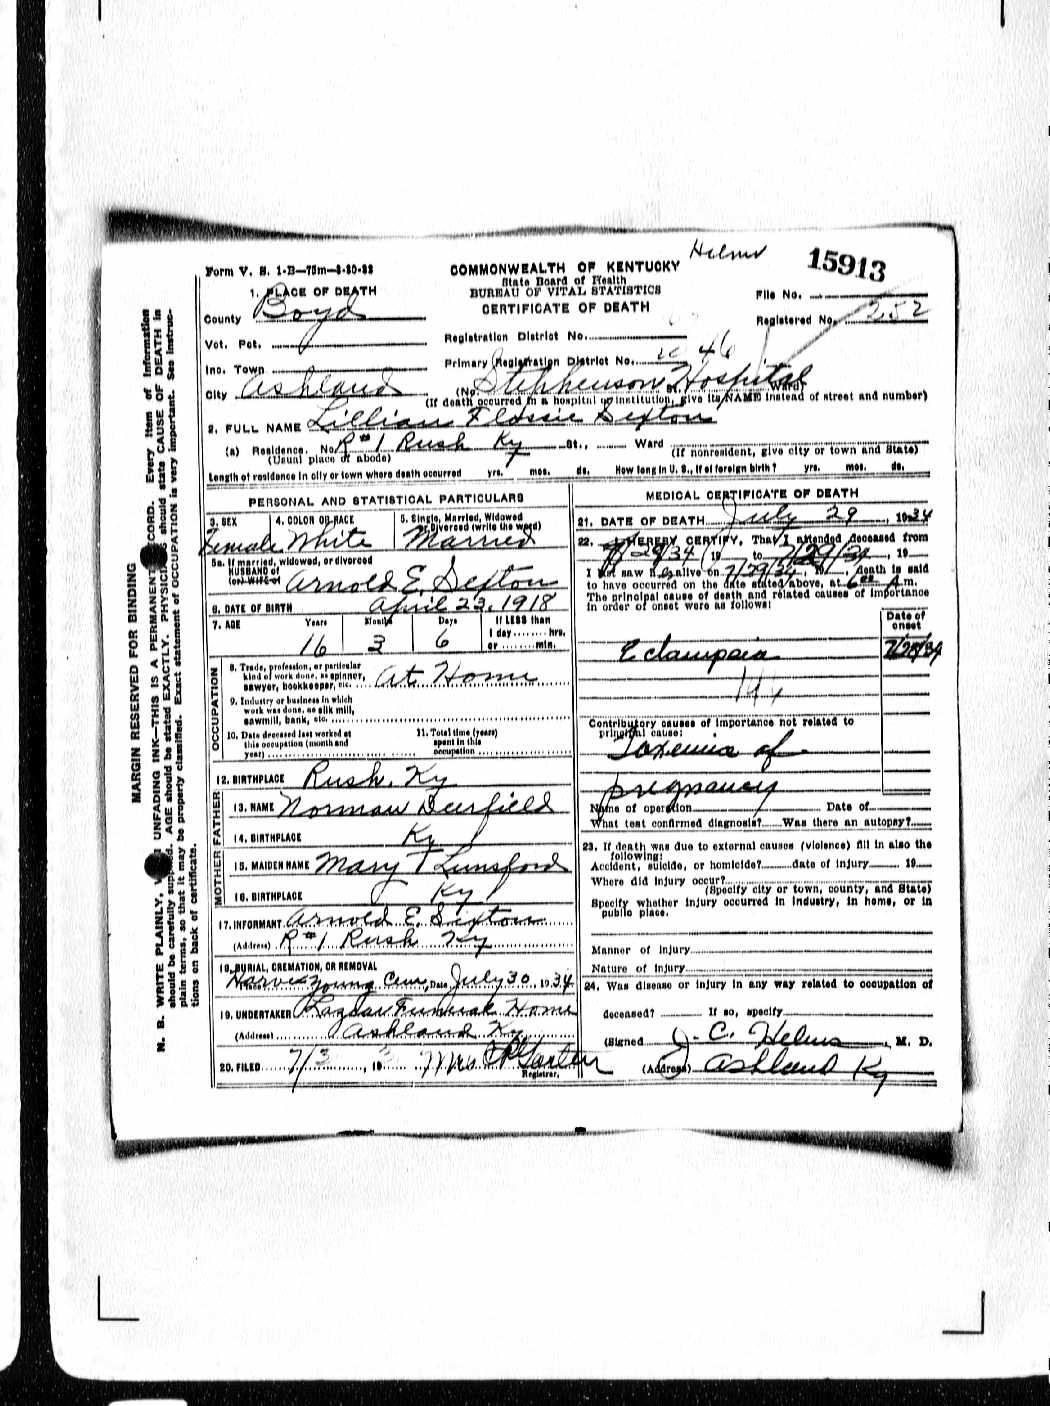 Helms
15913
Form V. S. 1-B—75m—8-30-33
COMMONWEALTH OF KENTUCKY
State Board of Health
BUREAU OF VITAL STATISTICS
CERTIFICATE OF DEATH
1. PLACE OF DEATH
File No.
County Boyd
Registered No. 252
Vot. Pct.
Registration District No.
Inc. Town
Primary Registration District No. 46
City Ashland
(No. Stephenson Hospital St. Ward
(If death occurred in a hospital or institution, give its NAME instead of street and number)
2. FULL NAME Lillian Flossie Sexton
(a) Residence. No. R#1 Rush Ky St., Ward
(Usual place of abode)
(If nonresident, give city or town and State)
Length of residence in city or town where death occurred yrs. mos. ds. How long in U. S., if of foreign birth? yrs. mos. ds.
PERSONAL AND STATISTICAL PARTICULARS
3. SEX Female
4. COLOR OR RACE White
5. Single, Married, Widowed or Divorced (write the word) Married
5a. If married, widowed, or divorced
HUSBAND of
(or) WIFE of Arnold E. Sexton
6. DATE OF BIRTH April 23, 1918
7. AGE Years 16 Months 3 Days 6 If LESS than 1 day hrs. or min.
OCCUPATION
8. Trade, profession, or particular kind of work done, as spinner, sawyer, bookkeeper, etc. At Home
9. Industry or business in which work was done, as silk mill, sawmill, bank, etc.
10. Date deceased last worked at this occupation (month and year)
11. Total time (years) spent in this occupation
12. BIRTHPLACE Rush, Ky
FATHER
13. NAME Norman Deerfield
14. BIRTHPLACE Ky
MOTHER
15. MAIDEN NAME Mary T Lunsford
16. BIRTHPLACE Ky
17. INFORMANT Arnold E. Sexton
(Address) R#1 Rush Ky
18. BURIAL, CREMATION, OR REMOVAL
Place Young Cem, Date July 30, 1934
19. UNDERTAKER Funeral Home
(Address) Ashland Ky
20. FILED 7/3 19 Mrs
Registrar.
MEDICAL CERTIFICATE OF DEATH
21. DATE OF DEATH July 29, 1934
22. I HEREBY CERTIFY, That I attended deceased from
7/29/34, 19 to 7/29/34, 19
I last saw her alive on 7/29/34, 19, death is said
to have occurred on the date stated above, at 6 00 A m.
The principal cause of death and related causes of importance
in order of onset were as follows:
Date of onset
Eclampsia
Contributory causes of importance not related to
principal cause:
Toxemia of
pregnancy
Name of operation Date of
What test confirmed diagnosis? Was there an autopsy?
23. If death was due to external causes (violence) fill in also the
following:
Accident, suicide, or homicide? date of injury 19
Where did injury occur?
(Specify city or town, county, and State)
Specify whether injury occurred in industry, in home, or in
public place.
Manner of injury
Nature of injury
24. Was disease or injury in any way related to occupation of
deceased? If so, specify
(Signed J. C. Helms, M. D.
(Address) Ashland Ky
MARGIN RESERVED FOR BINDING
N. B. WRITE PLAINLY, UNFADING INK—THIS IS A PERMANENT RECORD. Every item of information
should be carefully supplied. AGE should be stated EXACTLY. PHYSICIANS should state CAUSE OF DEATH in
plain terms, so that it may be properly classified. Exact statement of OCCUPATION is very important. See instruc-
tions on back of certificate.